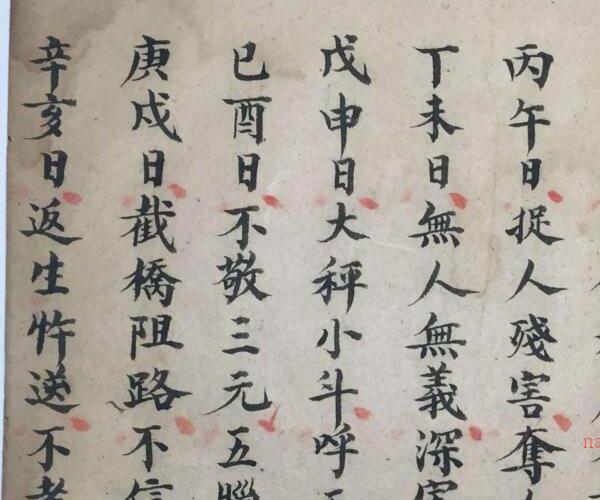 丙午日捉人殘害奪
丁未日無人無義深害
戊申日大秤小斗呼
已酉日不敬三元五腦
庚戌日截橋阻路不信
辛亥日返生忤逆不孝
na